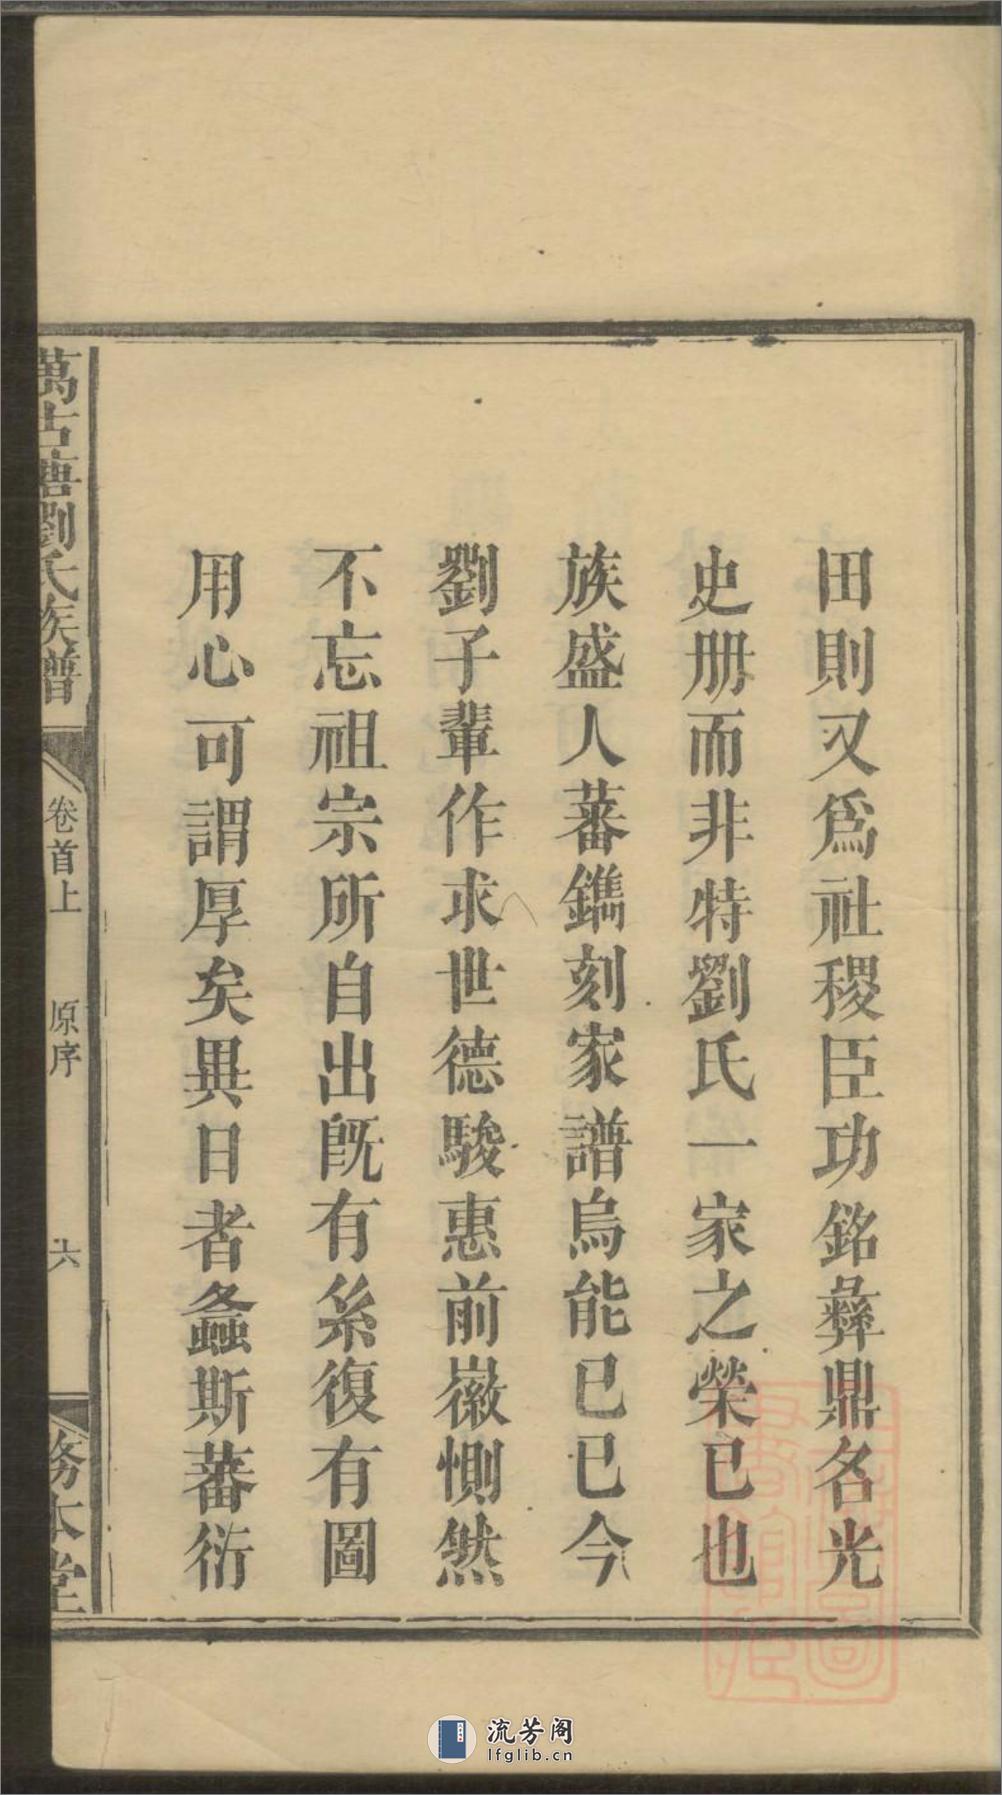 田則又爲社稷臣功銘彝鼎名光
史册而非特劉氏一家之榮已也
族盛人蕃鐫刻家譜烏能已已今
劉子輩作求世德駿惠前徽惻然
不忘祖宗所自出旣有系復有圖
用心可謂厚矣異日者螽斯蕃衍
萬古塘劉氏族譜
卷首上
原序
六
務本堂
流芳阁
lfglib.cn